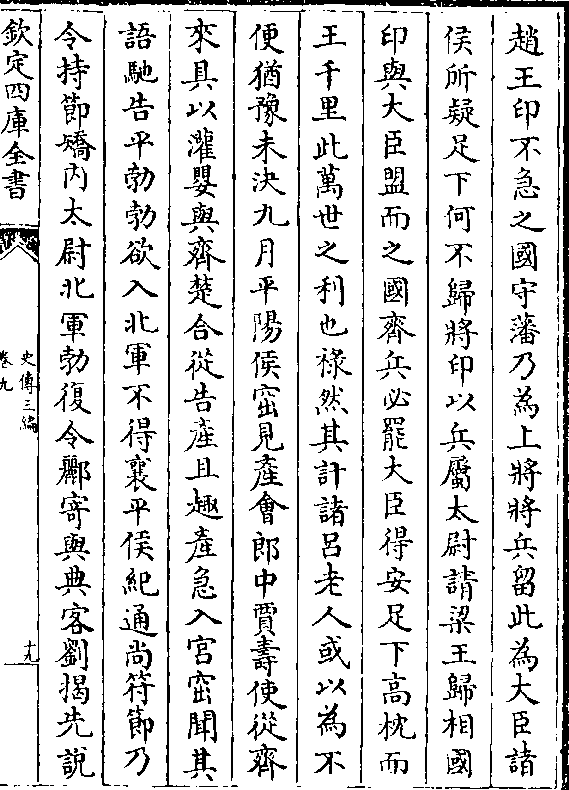 趙王印不急之國守藩乃為上將將兵留此為大臣諸
侯所疑足下何不歸將印以兵屬太尉請梁王歸相國
印與大臣盟而之國齊兵必罷大臣得安足下高枕而
王千里此萬世之利也祿然其計諸呂老人或以為不
便猶豫未決九月平陽侯窋見產會郎中賈壽使從齊
來具以灌嬰與齊楚合從告產且趣產急入宮窋聞其
語馳告平勃勃欲入北軍不得襄平侯紀通尚符節乃
令持節矯內太尉北軍勃復令酈寄與典客劉揭先說
欽定四庫全書
史傳三編
卷九
十九